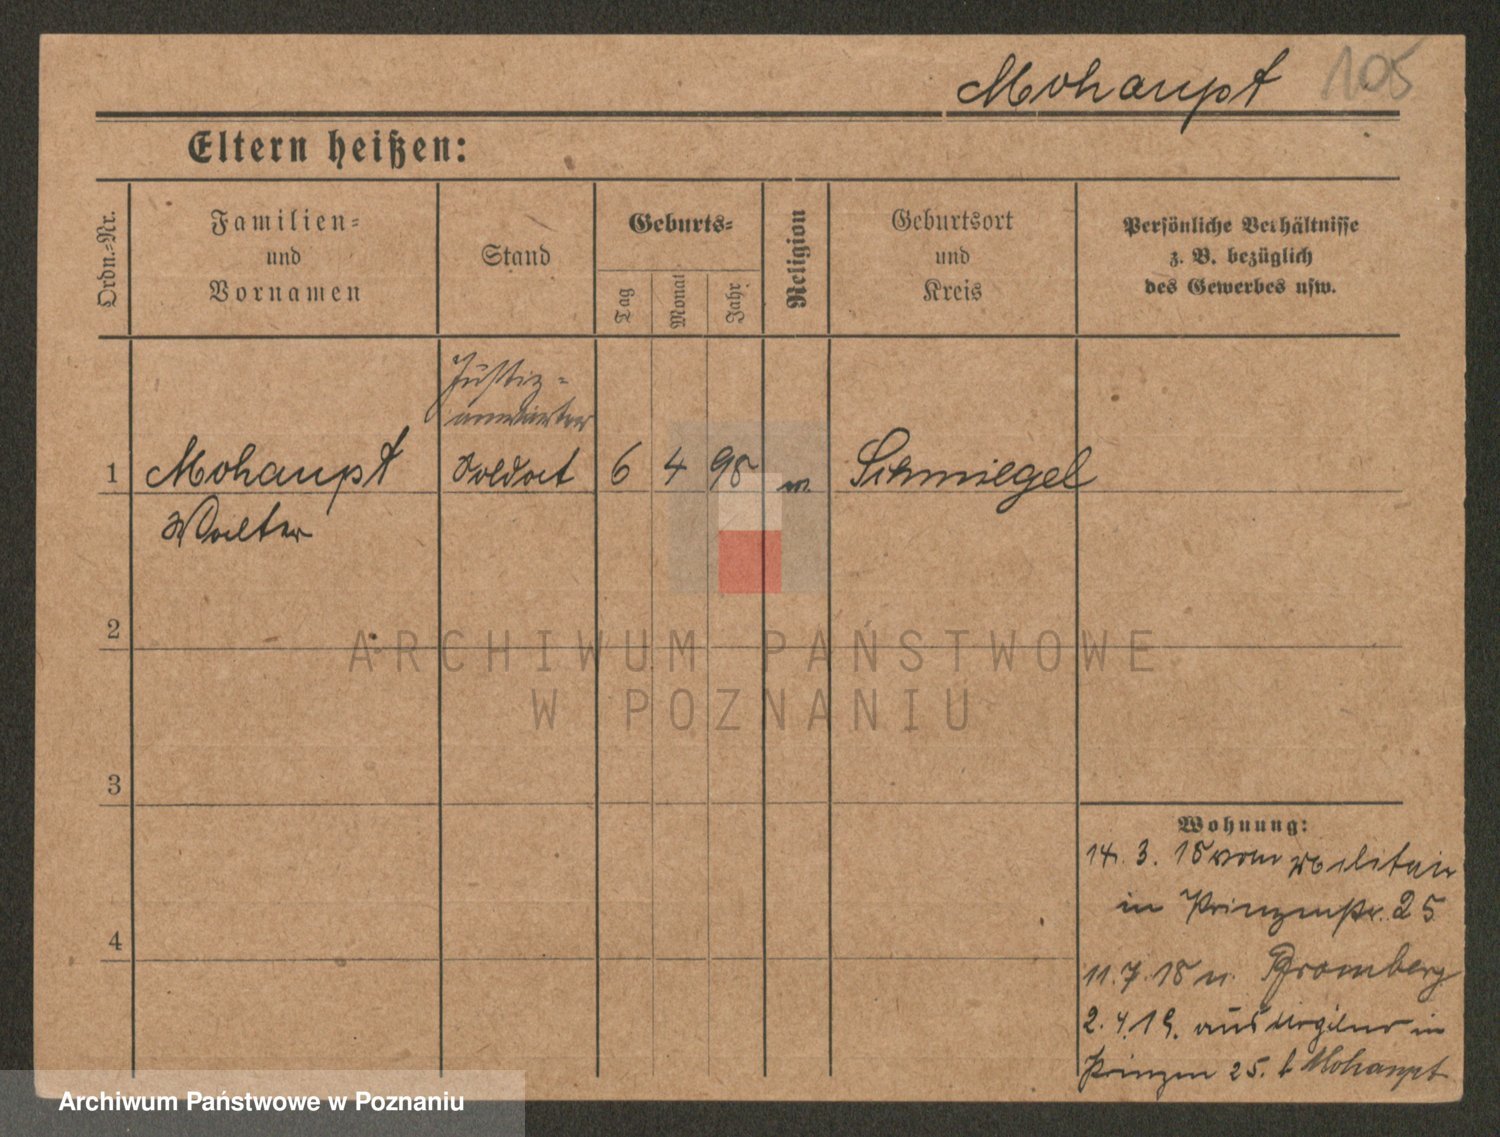 Mohaupt 105
Eltern heißen:
Ordn.=Nr.
Familien=
und
Vornamen
Stand
Geburts=
Tag
Monat
Jahr
Religion
Geburtsort
und
Kreis
Persönliche Verhältnisse
z. B. bezüglich
des Gewerbes usw.
Justiz=
anwärter
1 Mohaupt Soldat 6 4 98 Schmiegel
Walter
2
3
4
Wohnung:
14. 3. 18 vom Militair
in Prinzenstr. 25
11. 7. 18 n. Bromberg
2. 4. 19. aus in
Prinzen 25. b Mohaupt
ARCHIWUM PAŃSTWOWE
W POZNANIU
Archiwum Państwowe w Poznaniu